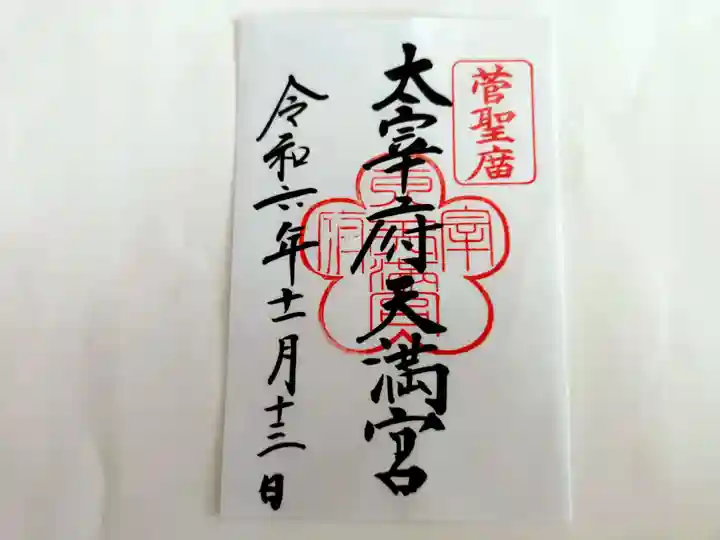 菅聖庿
太宰府天満宮
令和六年十一月十三日